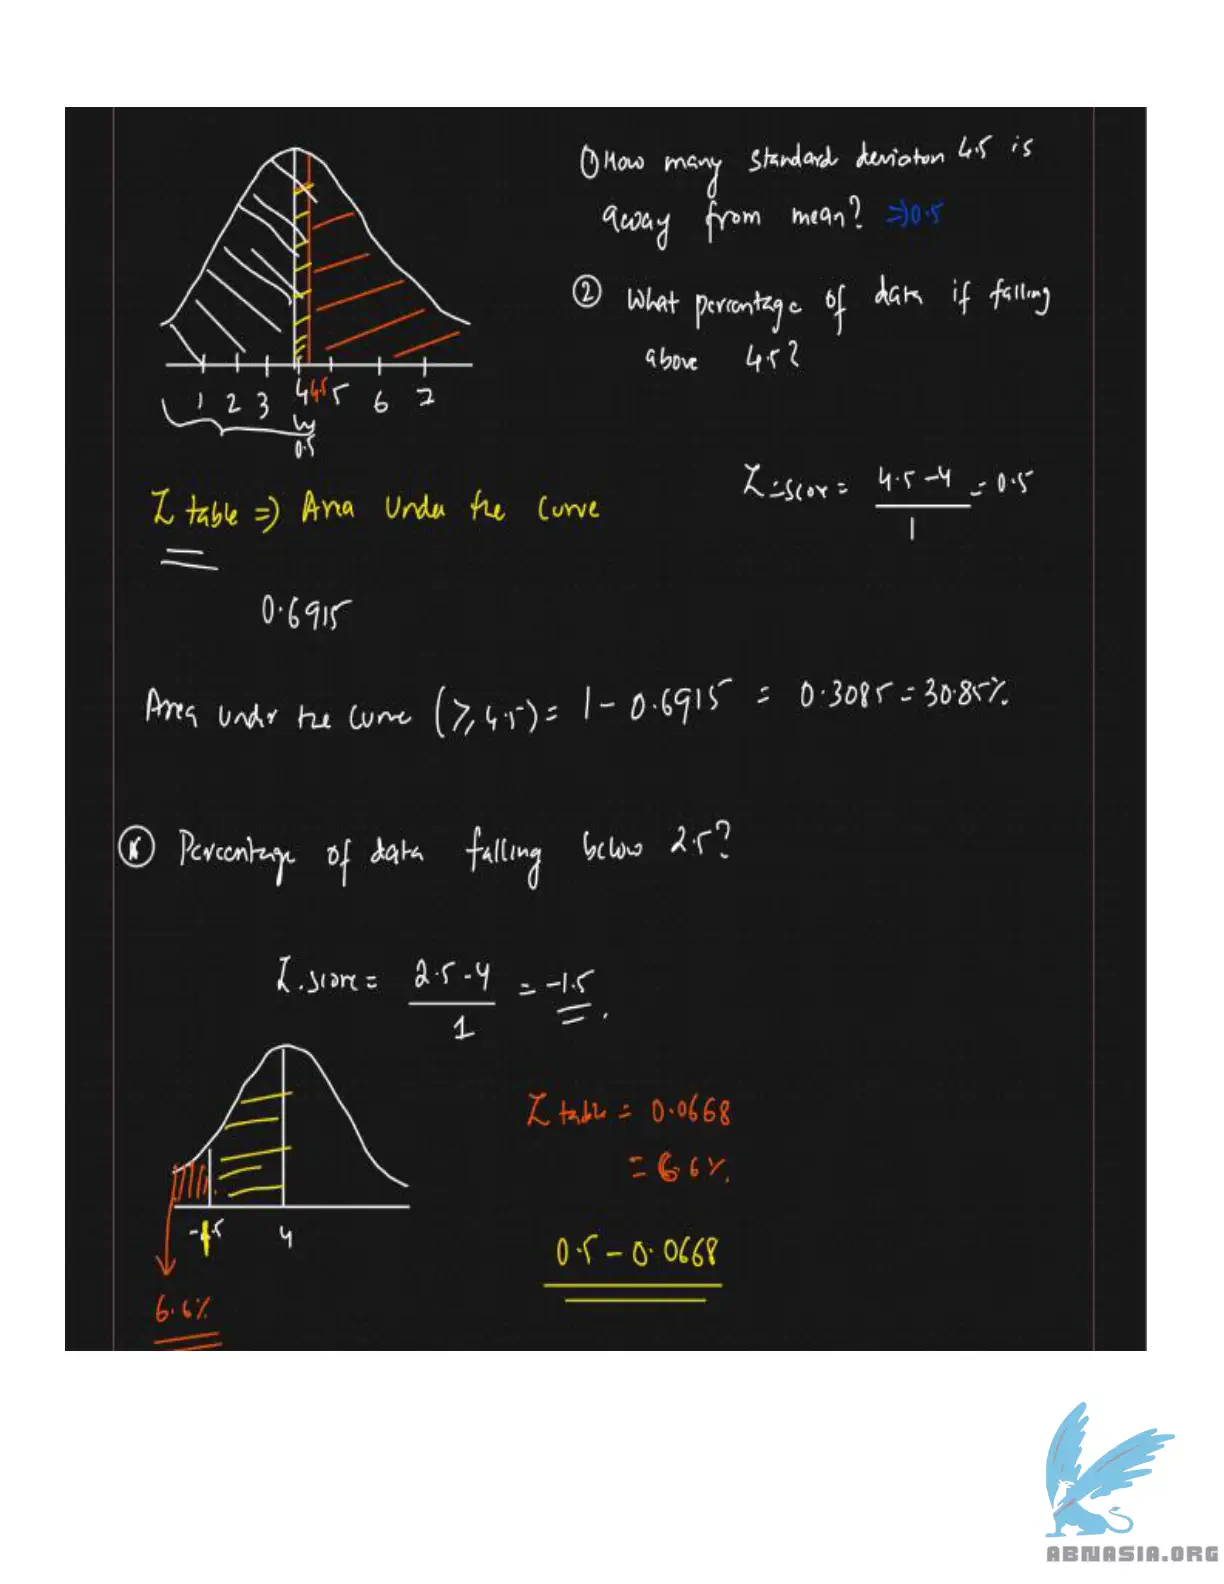 ① How many Standard deviaton 4.5 is
away from mean? ⇒ 0.5
② What percentage of data if falling
above 4.5?
1 2 3 4 4.5 5 6 7
0.5
Z-score = 4.5 - 4 / 1 = 0.5
Z table ⇒ Area Under the Curve
0.6915
Area under the curve (≥ 4.5) = 1 - 0.6915 = 0.3085 = 30.85%
Percentage of data falling below 2.5?
Z.score = 2.5 - 4 / 1 = -1.5
Z table = 0.0668
= 6.6%
4
0.5 - 0.0668
6.6%
ABNASIA.ORG